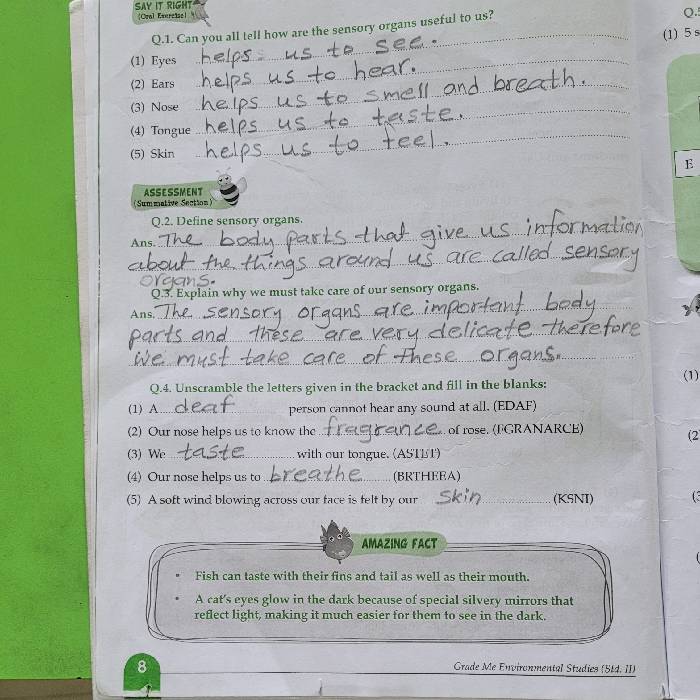 SAY IT RIGHT
(Oral Exercise)
Q.1. Can you all tell how are the sensory organs useful to us?
(1) Eyes helps us to see.
(2) Ears helps us to hear.
(3) Nose helps us to smell and breath.
(4) Tongue helps us to taste.
(5) Skin helps us to feel.
ASSESSMENT
(Summative Section)
Q.2. Define sensory organs.
Ans. The body parts that give us information
about the things around us are called sensory
organs.
Q.3. Explain why we must take care of our sensory organs.
Ans. The sensory organs are important body
parts and these are very delicate therefore
we must take care of these organs.
Q.4. Unscramble the letters given in the bracket and fill in the blanks:
(1) A deaf person cannot hear any sound at all. (EDAF)
(2) Our nose helps us to know the fragrance of rose. (FGRANARCE)
(3) We taste with our tongue. (ASTET)
(4) Our nose helps us to breathe (BRTHEEA)
(5) A soft wind blowing across our face is felt by our skin (KSNI)
AMAZING FACT
• Fish can taste with their fins and tail as well as their mouth.
• A cat's eyes glow in the dark because of special silvery mirrors that
reflect light, making it much easier for them to see in the dark.
8
Grade Me Environmental Studies (Std. II)
(1) 5 s
E
(1)
(2